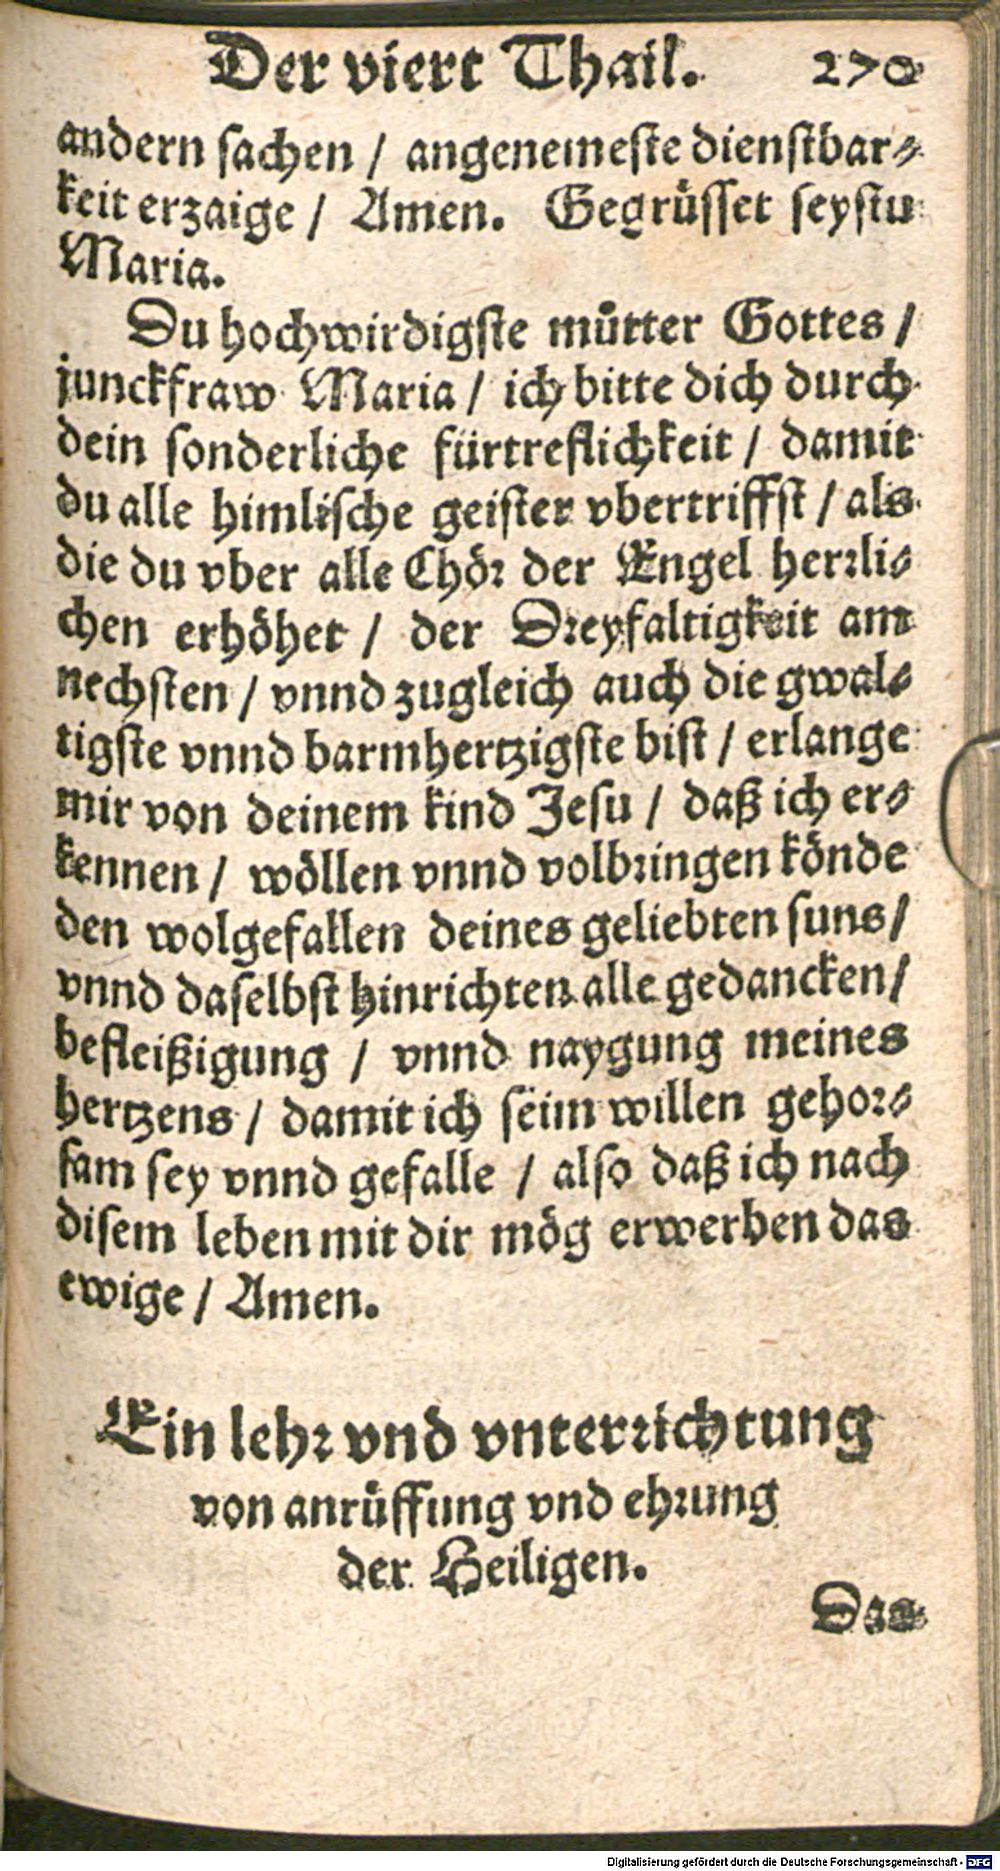 Der viert Thail. 270
andern sachen / angenemeste dienstbar⸗
keit erzaige / Amen. Gegrüsset seystu
Maria.
Du hochwirdigste můtter Gottes /
junckfraw Maria / ich bitte dich durch
dein sonderliche fürtreflichkeit / damit
du alle himlische geister vbertriffst / als
die du vber alle Chör der Engel herrli⸗
chen erhöhet / der Dreyfaltigkeit am
nechsten / vnnd zugleich auch die gwal⸗
tigste vnnd barmhertzigste bist / erlange
mir von deinem kind Jesu / daß ich er⸗
kennen / wöllen vnnd volbringen könde
den wolgefallen deines geliebten suns /
vnnd daselbst hinrichten alle gedancken /
befleißigung / vnnd naygung meines
hertzens / damit ich seim willen gehor⸗
sam sey vnnd gefalle / also daß ich nach
disem leben mit dir mög erwerben das
ewige / Amen.
Ein lehr vnd vnterrichtung
von anrůffung vnd ehrung
der Heiligen.
Digitalisierung gefördert durch die Deutsche Forschungsgemeinschaft - DFG